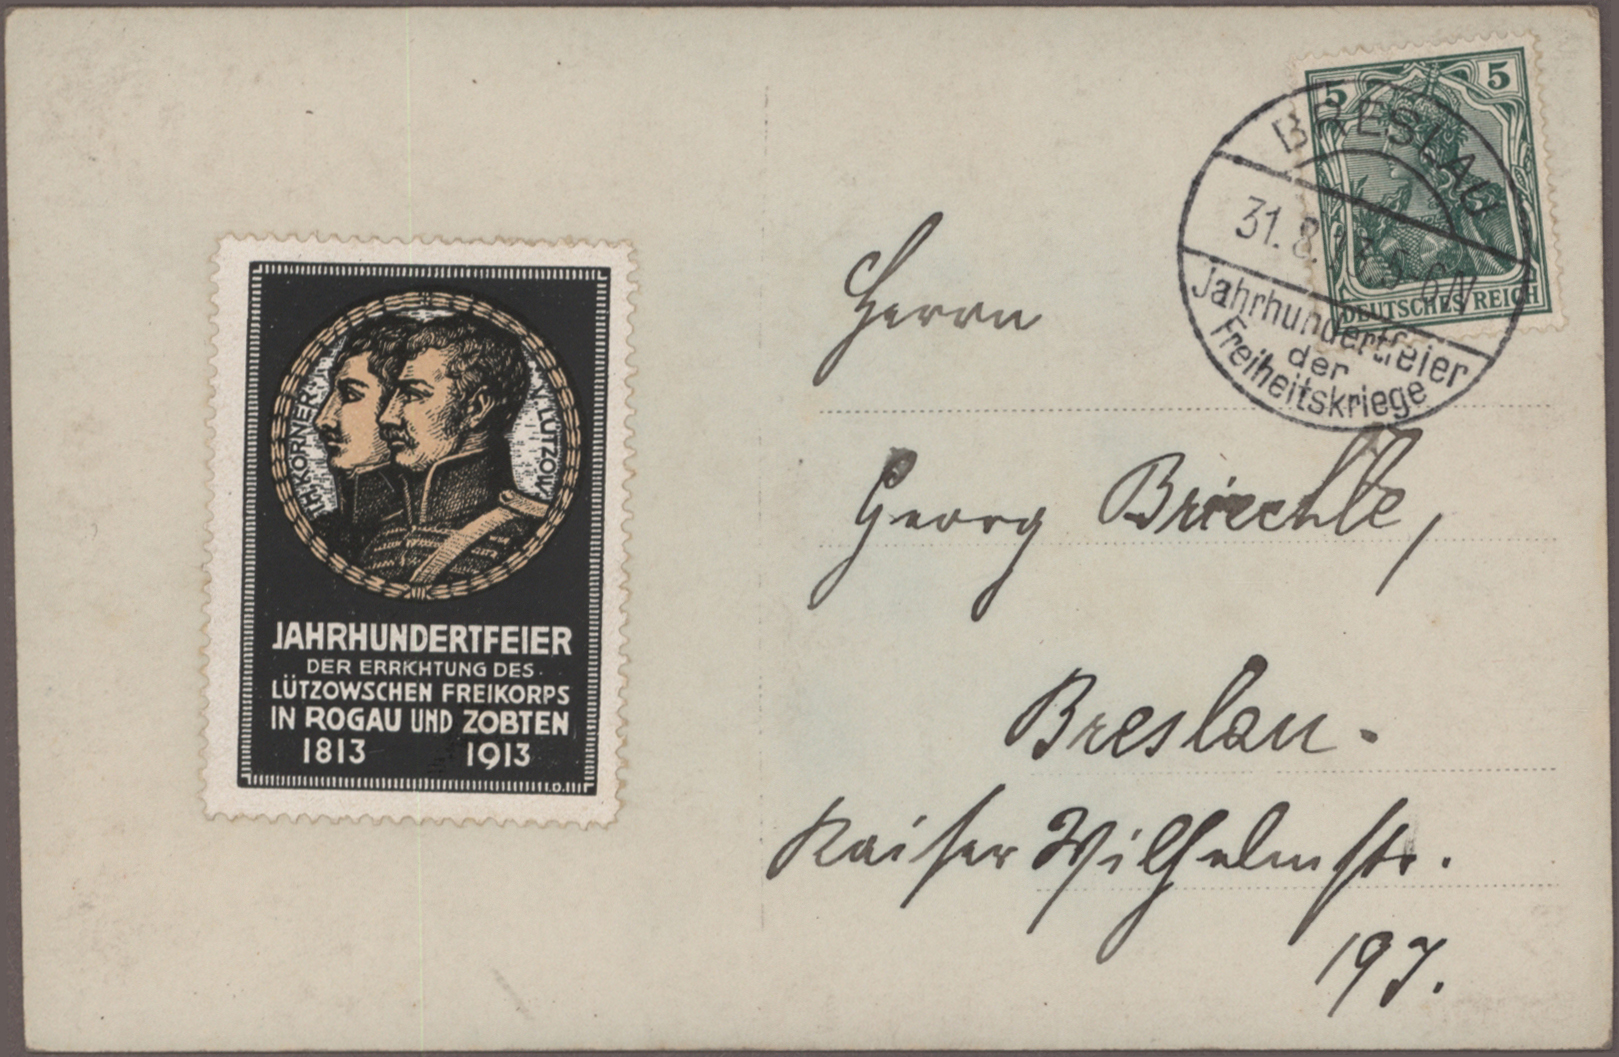 TH. KÖRNER
V. LÜTZOW
JAHRHUNDERTFEIER
DER ERRICHTUNG DES
LÜTZOWSCHEN FREIKORPS
IN ROGAU UND ZOBTEN
1813 1913
5 5
DEUTSCHES REICH
BRESLAU
31. 8. 13. 5-6N
Jahrhundertfeier
der
Freiheitskriege
Herrn
Georg
Breslau.
Kaiser Wilhelmstr.
197.